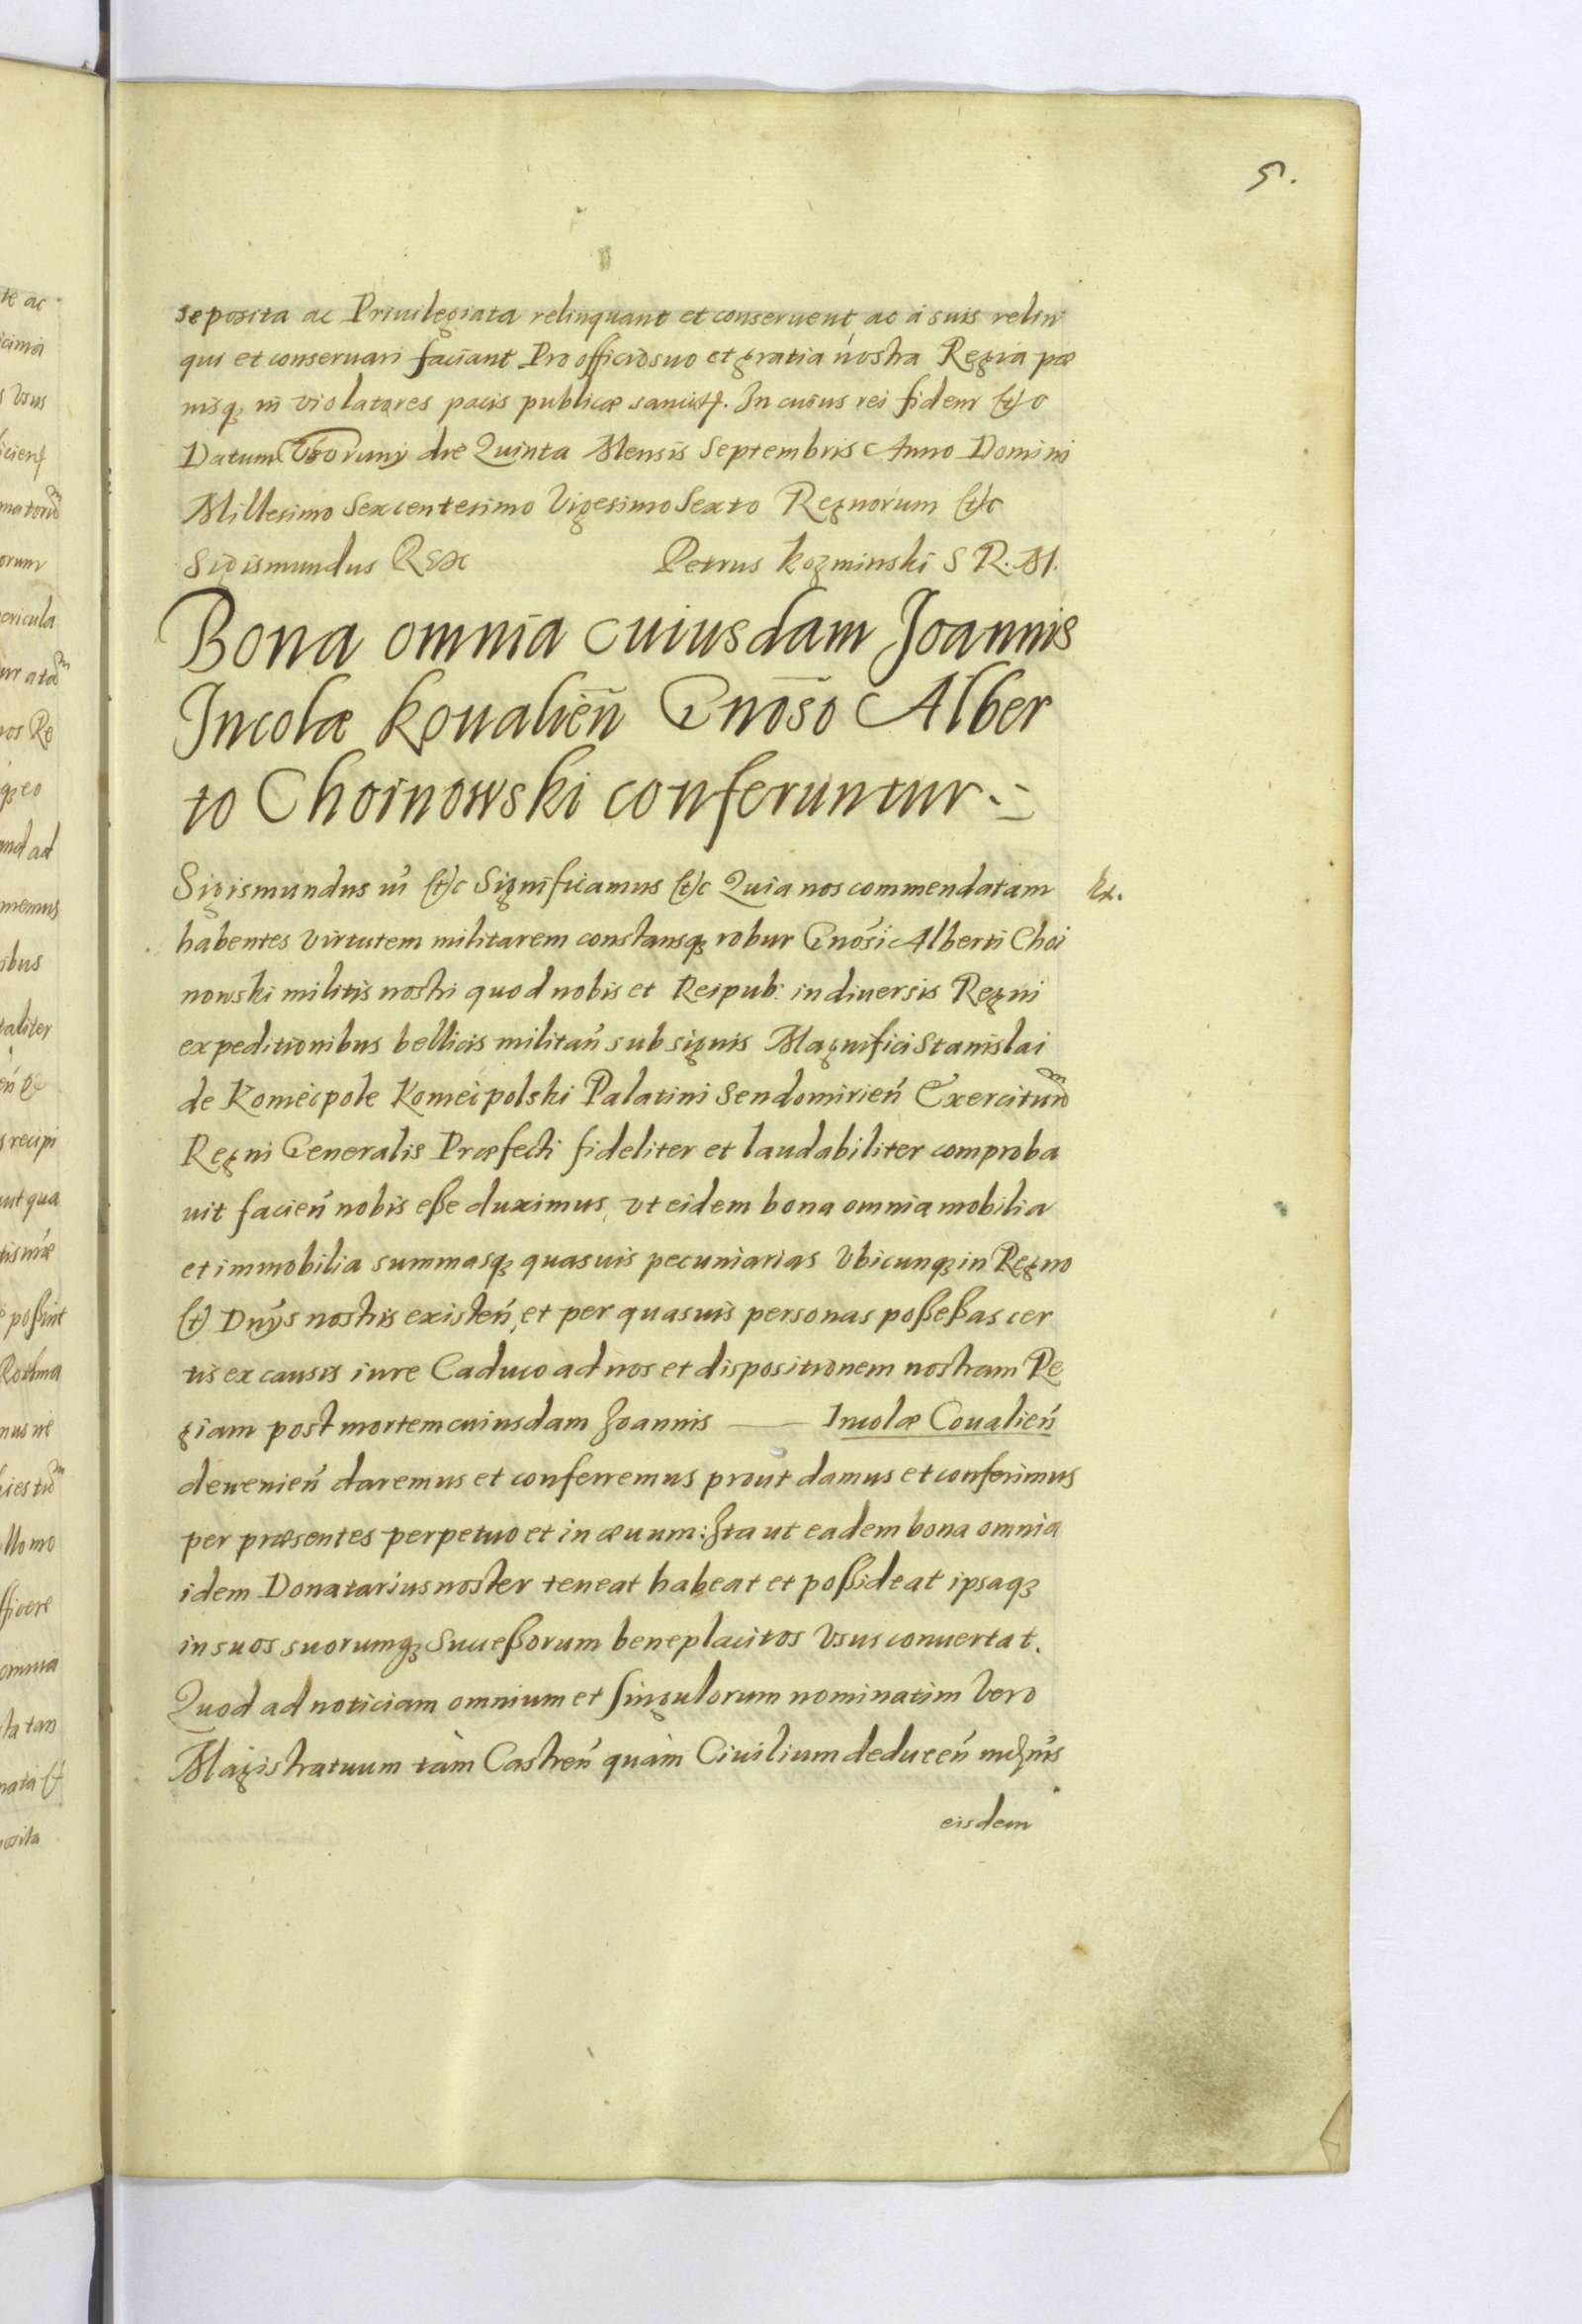 5.
seposita ac Priuilegiata relinquant et conseruent ac à suis relin
qui et conseruari faciant Pro officio suo et gratia nostra Regia pœ
nisqꝫ in violatores pacis publicæ sancitis. In cuius rei fidem (et)c
Datum Thoruny die Quinta Mensis Septembris Anno Domini
Millesimo Sexcentesimo Vigesimo Sexto Regnorum (et)c
Sigismundus Rex Petrus Kozminski S R. M.
Bona omnia cuiusdam Joannis
Incolæ Koualien̄ Gnōso Alber
to Choinowski conferuntur
Sigismundus iii (et)c Significamus (et)c Quia nos commendatam
habentes virtutem militarem constansqꝫ robur Gnosi Alberti Choi
nowski militis nostri quod nobis et Reipub: in diuersis Regni
expeditionibus bellicis militan̄ sub signis Magnifici Stanislai
de Koniecpole Koniecpolski Palatini Sendomirien̄ Exercituum
Regni Generalis Præfecti fideliter et laudabiliter comproba
uit facien̄ nobis eße duximus, vt eidem bona omnia mobilia
et immobilia summasqꝫ quasuis pecuniarias Vbicunqꝫ in Regno
(et) Dnÿs nostris existen̄, et per quasuis personas poßeßas cer
tis ex causis iure Caduco ad nos et dispositionem nostram Re
giam post mortem cuiusdam Joannis —— Incolæ Coualien̄
deuenien̄ daremus et conferremus prout damus et conferimus
per præsentes perpetuo et in æuum: Ita ut eadem bona omnia
idem Donatarius noster teneat habeat et poßideat ipsaqꝫ
in suos suorumqꝫ Succeßorum beneplacitos Vsus conuertat.
Quod ad noticiam omnium et singulorum nominatim Vero
Magistratuum tàm Castren̄ quàm Ciuilium deducen̄
eisdem